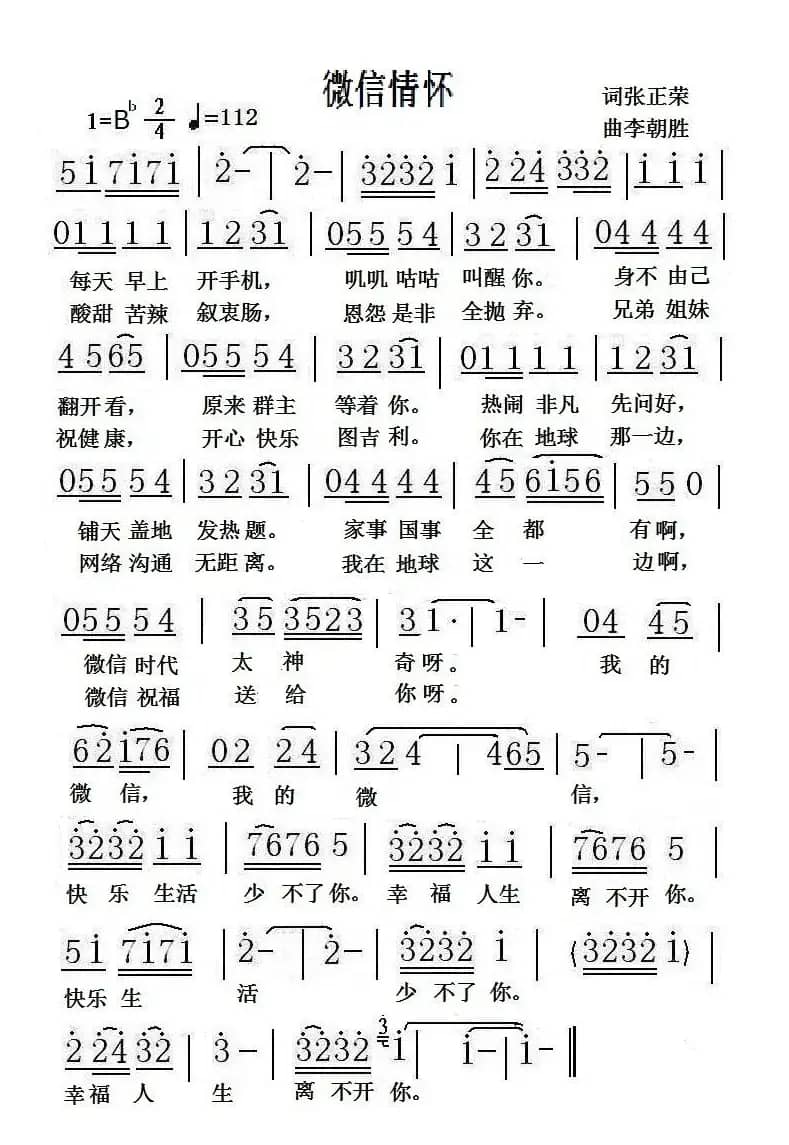 微信情怀
1=B♭ 2/4 ♩=112
词张正荣
曲李朝胜
5 i̇ 7 i̇ 7 i̇ | 2̇ - | 2̇ - | 3̇ 2̇ 3̇ 2̇ i̇ | 2̇ 2̇ 4̇ 3̇ 3̇ 2̇ | i̇ i̇ i̇ |
0 1 1 1 1 1 | 1 2 3 1 | 0 5 5 5 5 4 | 3 2 3 1 | 0 4 4 4 4 4 |
每天 早上 开手机， 叽叽 咕咕 叫醒 你。 身不 由己
酸甜 苦辣 叙衷肠， 恩怨 是非 全抛 弃。 兄弟 姐妹
4 5 6 5 | 0 5 5 5 5 4 | 3 2 3 1 | 0 1 1 1 1 1 | 1 2 3 1 |
翻开看， 原来 群主 等着 你。 热闹 非凡 先问好，
祝健康， 开心 快乐 图吉 利。 你在 地球 那一边，
0 5 5 5 5 4 | 3 2 3 1 | 0 4 4 4 4 4 | 4 5 6 i̇ 5 6 | 5 5 0
铺天 盖地 发热 题。 家事 国事 全 都 有啊，
网络 沟通 无距 离。 我在 地球 这 一 边啊，
0 5 5 5 5 4 | 3 5 3 5 2 3 | 3 1 · | 1 - | 0 4 4 5 |
微信 时代 太 神 奇呀。 我 的
微信 祝福 送 给 你呀。
6 2̇ i̇ 7 6 | 0 2 2 4 | 3 2 4 | 4 6 5 | 5 - | 5 - |
微 信， 我 的 微 信，
3̇ 2̇ 3̇ 2̇ i̇ i̇ | 7 6 7 6 5 | 3̇ 2̇ 3̇ 2̇ i̇ i̇ | 7 6 7 6 5 |
快 乐 生活 少 不了 你。 幸 福 人生 离 不开 你。
5 i̇ 7 i̇ 7 i̇ | 2̇ - | 2̇ - | 3̇ 2̇ 3̇ 2̇ i̇ | (3̇ 2̇ 3̇ 2̇ i̇) |
快乐 生 活 少 不了 你。
2̇ 2̇ 4̇ 3̇ 2̇ | 3̇ - | 3̇ 2̇ 3̇ 2̇ 3̇ i̇ | i̇ - | i̇ - ‖
幸 福 人 生 离 不开 你。